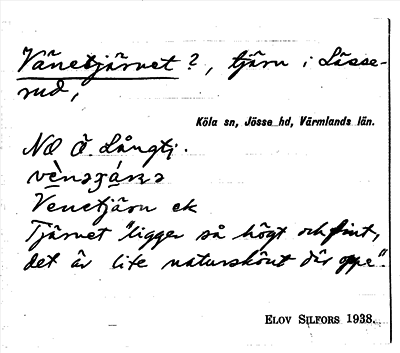 Vänetjärnet?, tjärn i Lässe-
rud,
Köla sn, Jösse hd, Värmlands län.
NO Ö. Långtj.
Venetjärn ek
Tjärnet "ligger så högt och fint,
det är lite naturskönt där oppe".
ELOV SILFORS 1938.